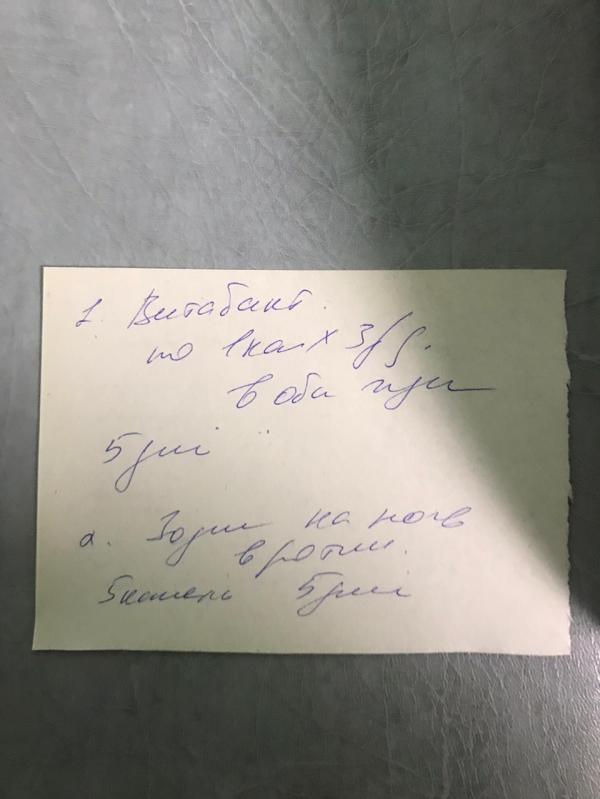 1. Витабакт.
по 1 кап х 3 р/д.
в оба глаза
5 дней
2. Зодак на ночь
в ротик.
5 капель 5 дней